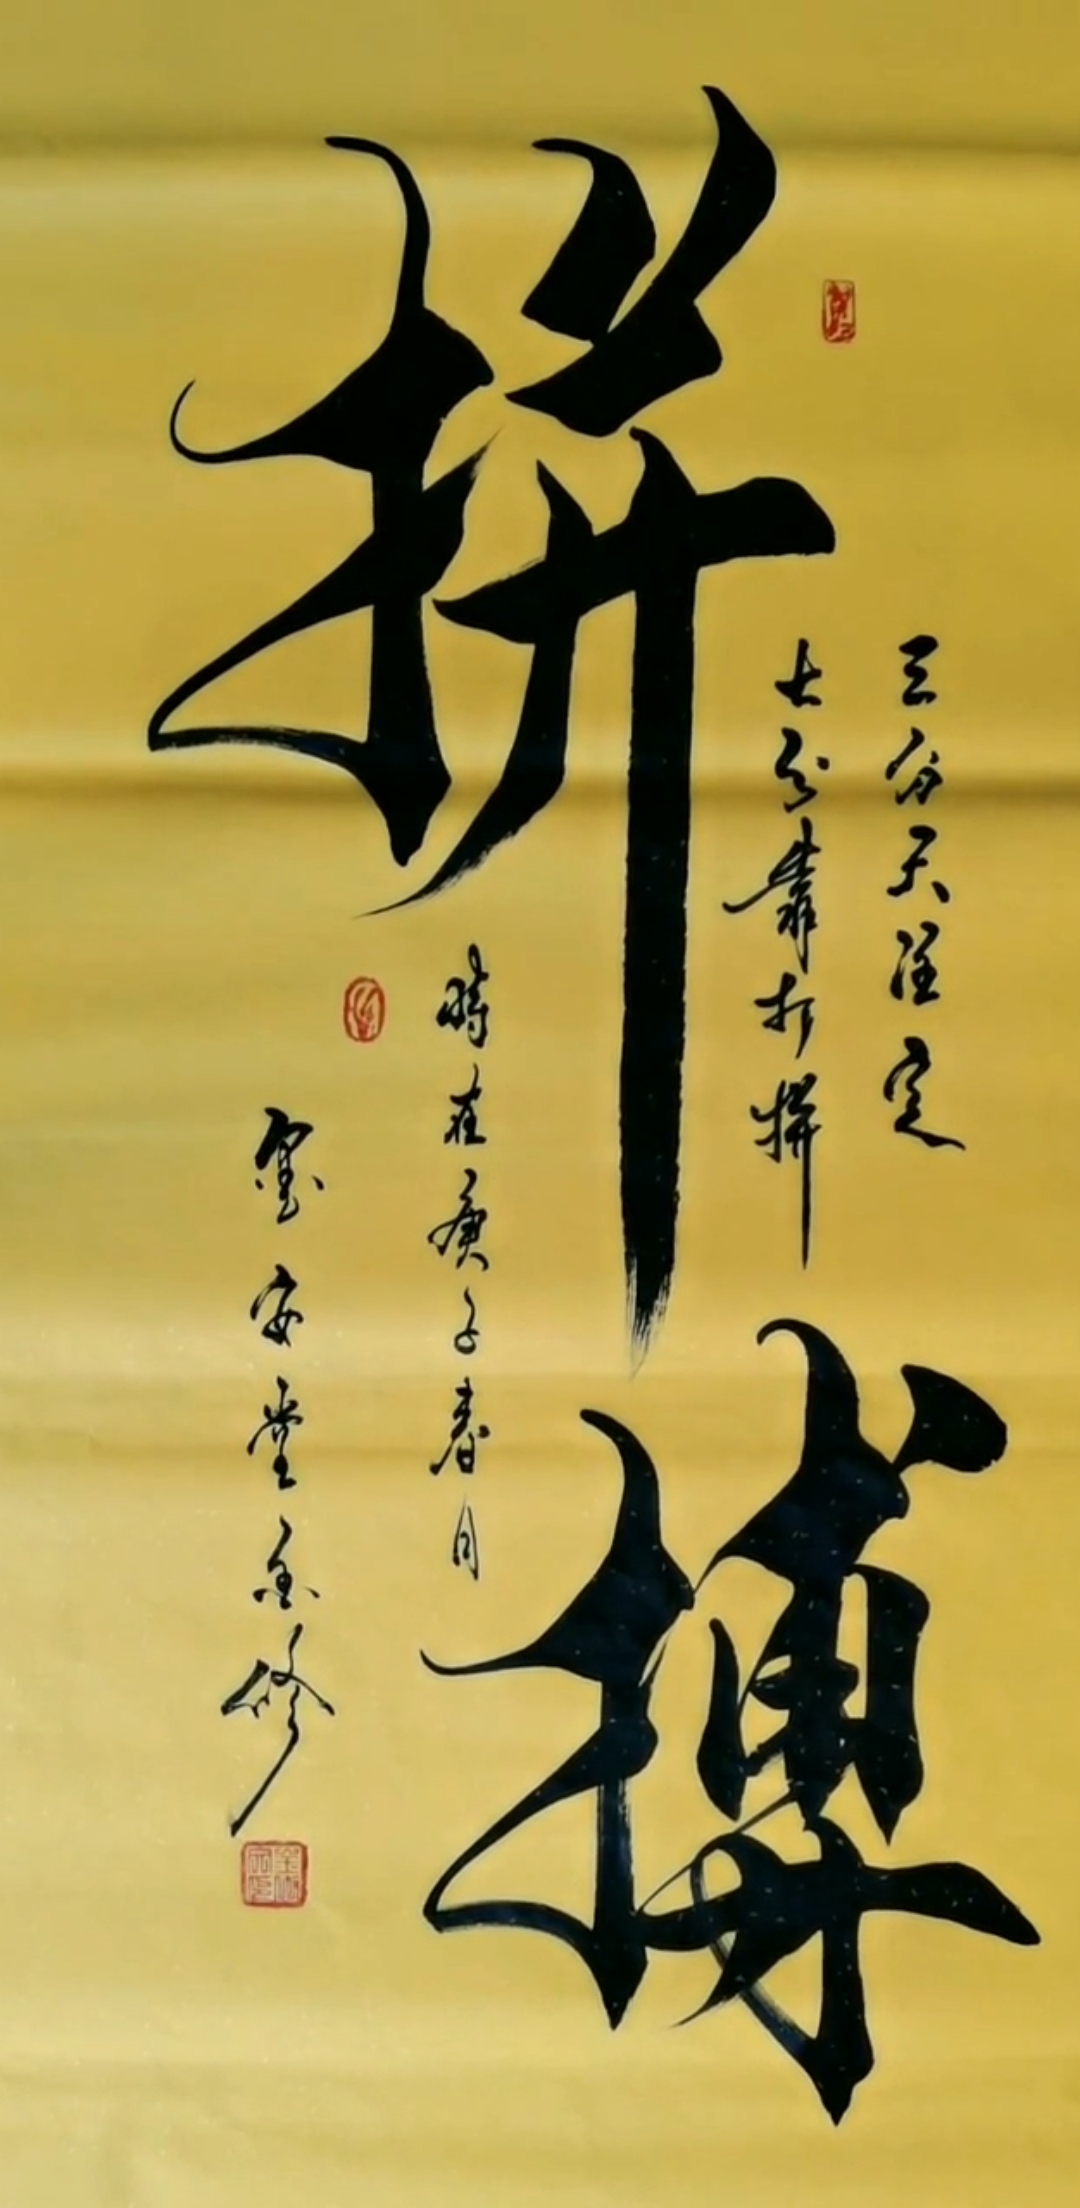 拼搏
三分天注定
七分靠打拼
時在庚子春月
玺安堂金修